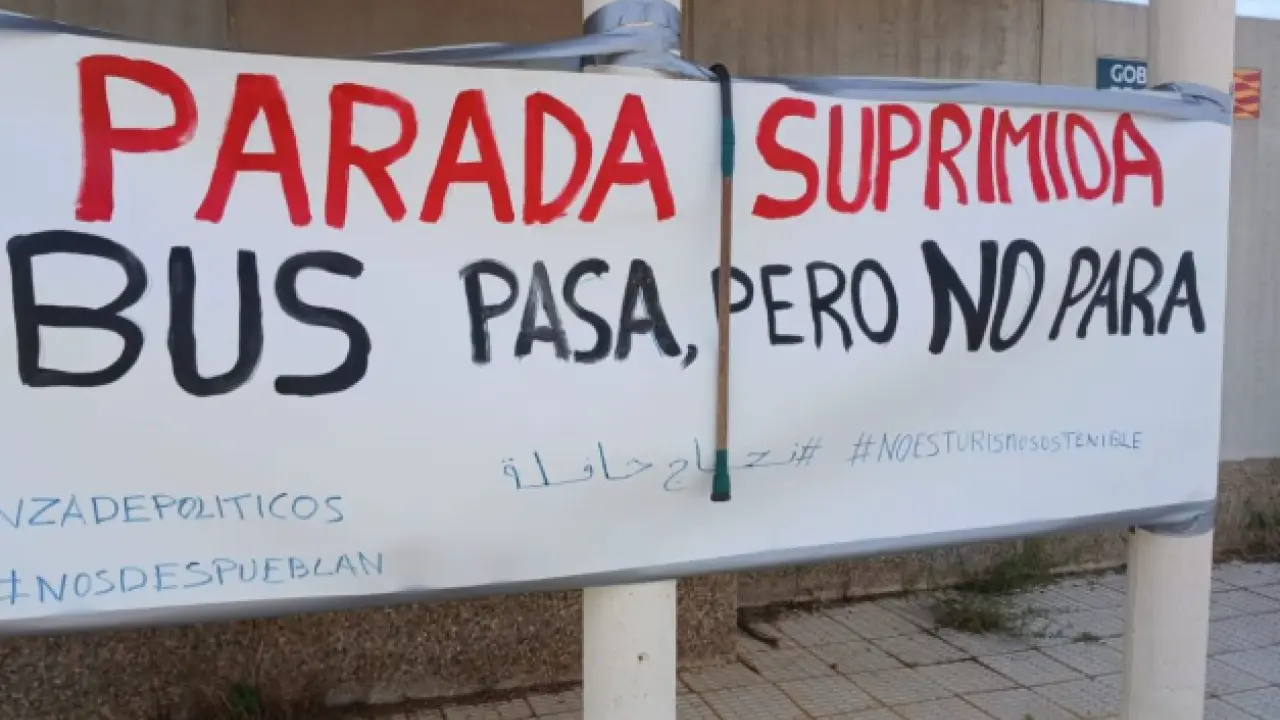 PARADA SUPRIMIDA
BUS PASA, PERO NO PARA
#نحتاج حافلة #NOESTURISMOSOSTENIBLE
NZADEPOLITICOS
#NOSDESPUEBLAN
GOB